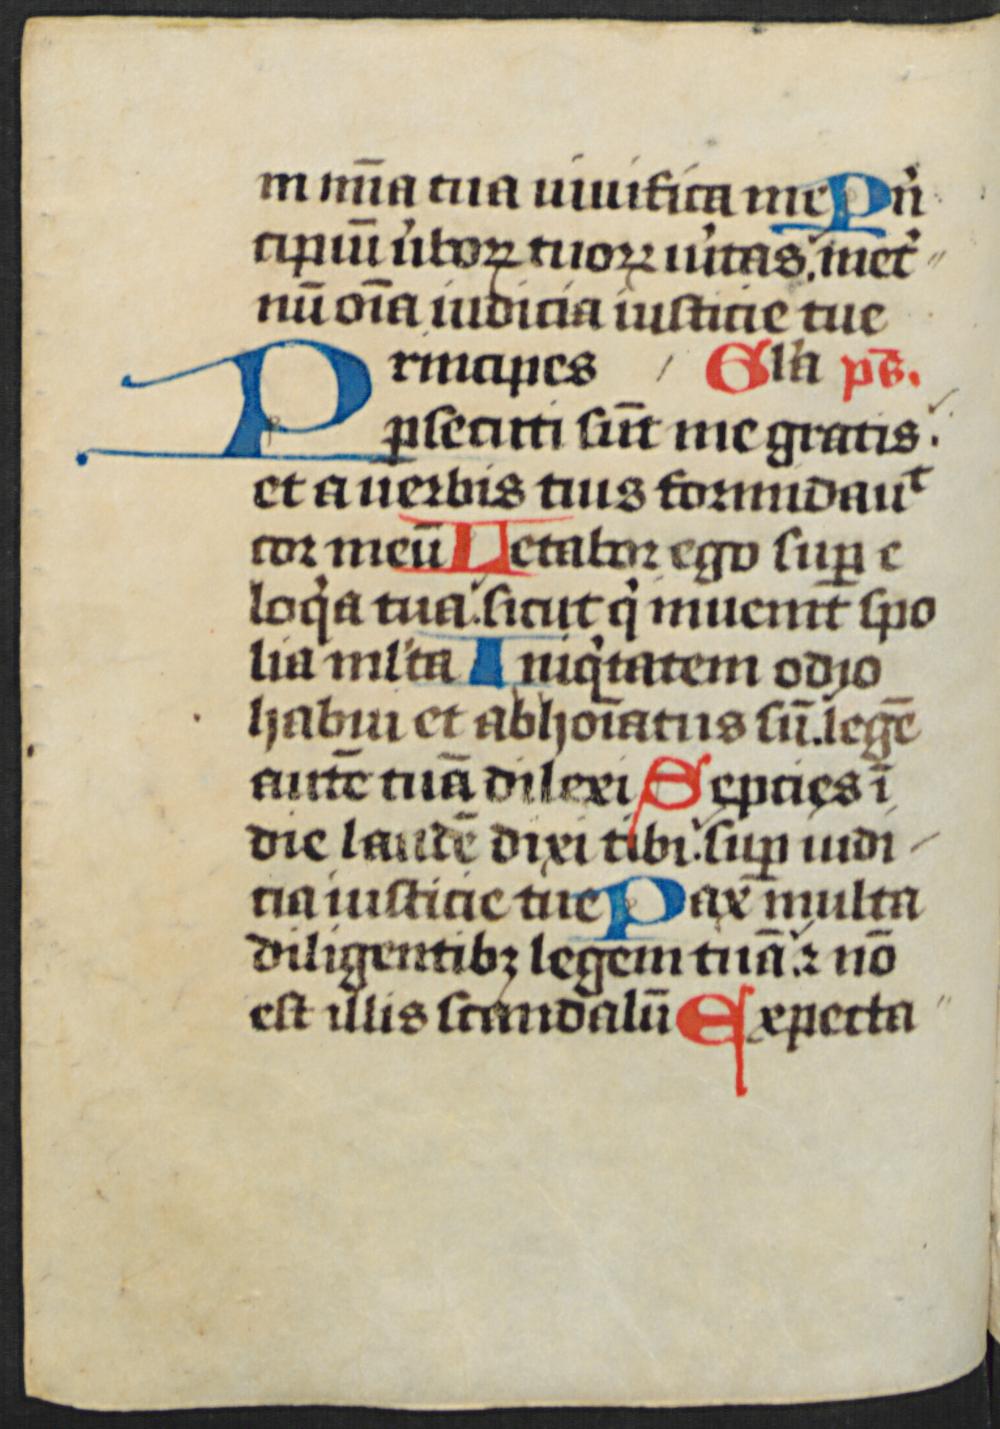 in mia̅ tua uiuifica me Pn̍
cipiu̅ ũboꝝ tuoꝝ uitas. inet̍
nu̅ oi̅a iudicia iusticie tue
Principes Gla ps̅.
ꝑsecuti su̅t me gratis.
et a uerbis tuis formidauᵗ
cor meu̅ Letabor ego suꝑ e
loq̍a tua. sicut q̍ inuenit spo
lia ml̍ta Iniq̍tatem odio
habui et abhoi̅atus su̅. lege̅
aute̅ tua̅ dilexi Septies i̅
die laude̅ dixi tibi. suꝑ iudi
cia iusticie tue Pax multa
diligentibꝫ legem tua̅. ⁊ no̅
est illis scandalu̅ Expecta